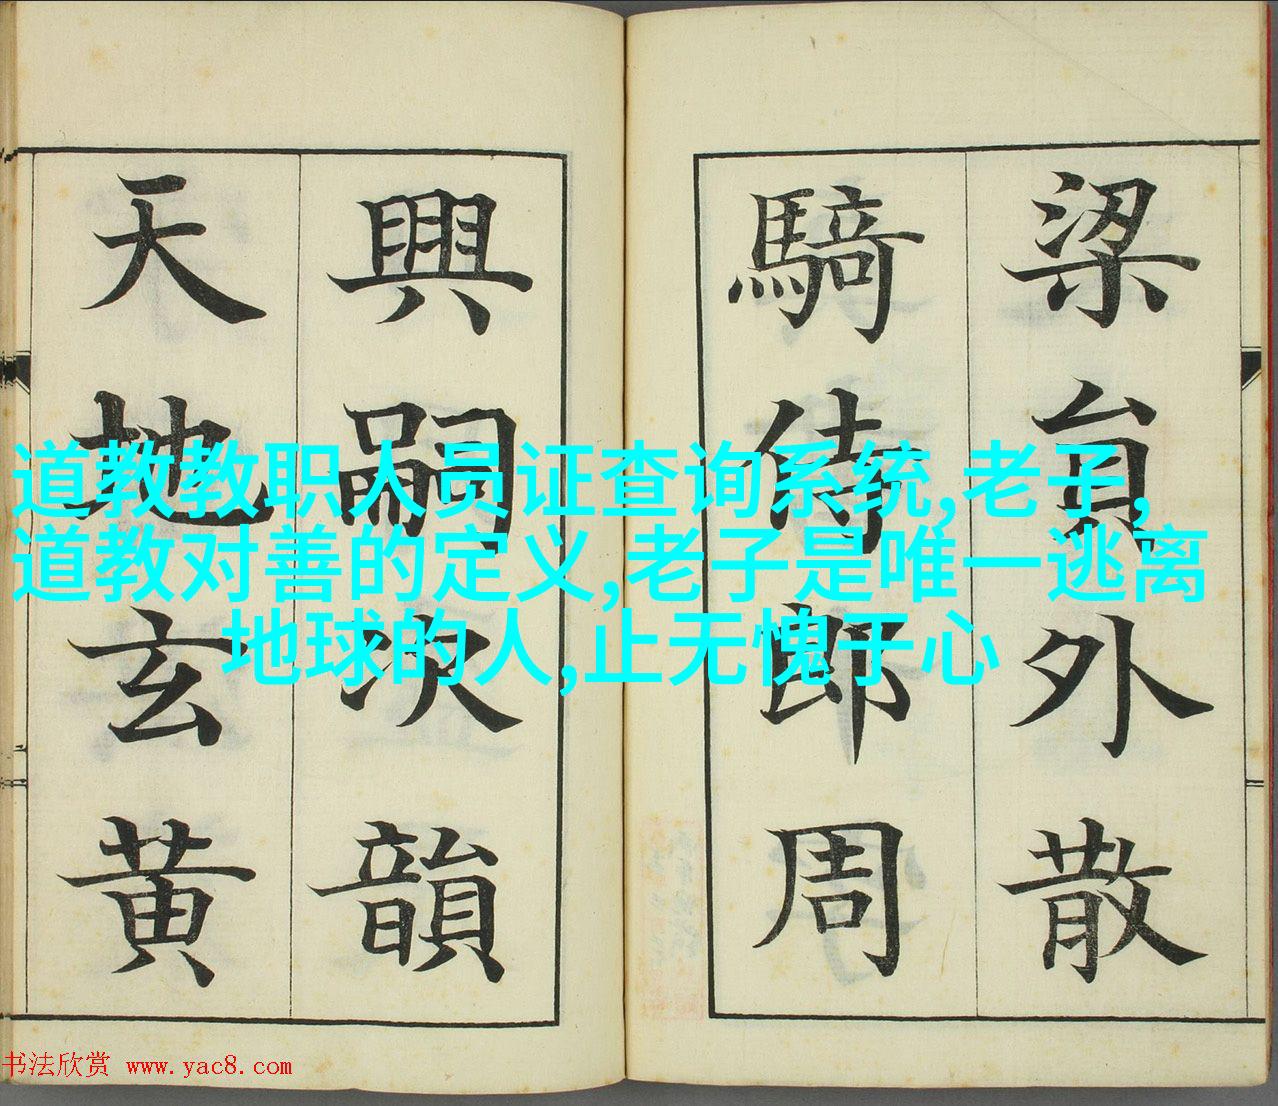 梁貟外散
騎侍郎周
興嗣次韻
天地玄黄
道教教职人员证查询系统,老子,
道教对善的定义,老子是唯一逃离
地球的人,止无愧于心
书法欣赏 www.yac8.com